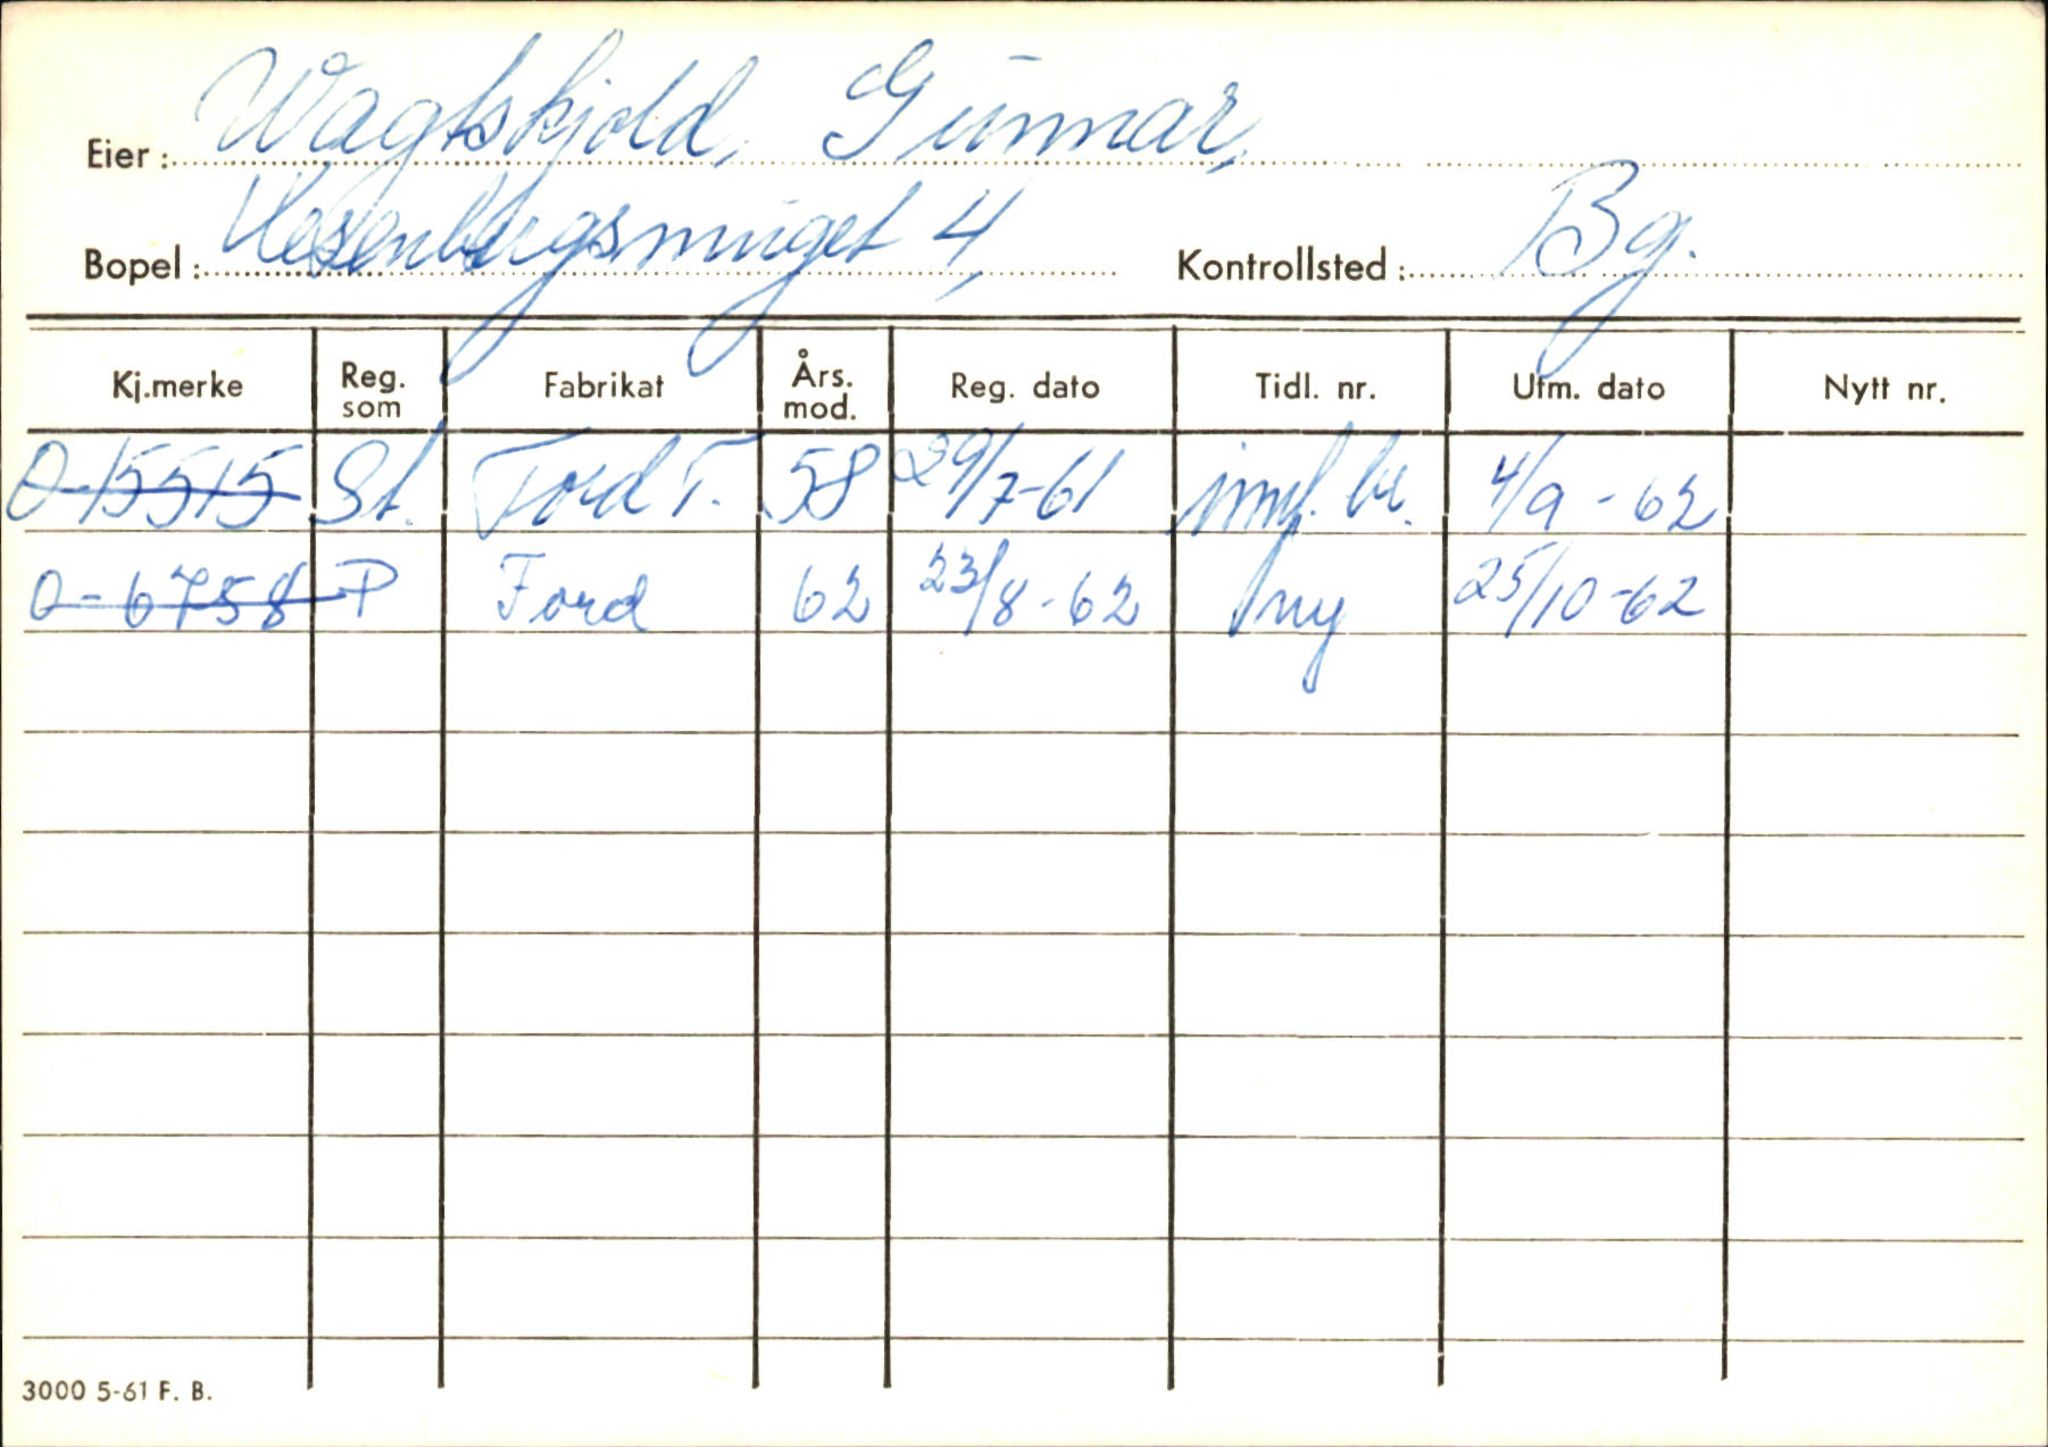 Eier: Wagtskjold, Gunnar,
Bopel: Hesenbergsmuget 4, Kontrollsted: Bg.
Kj.merke Reg. som Fabrikat Års. mod. Reg. dato Tidl. nr. Utm. dato Nytt nr.
O-15515 St. Ford T. 58 29/7-61 br. 4/9-62
O-6758 P Ford 62 23/8-62 ny 25/10-62
3000 5-61 F. B.